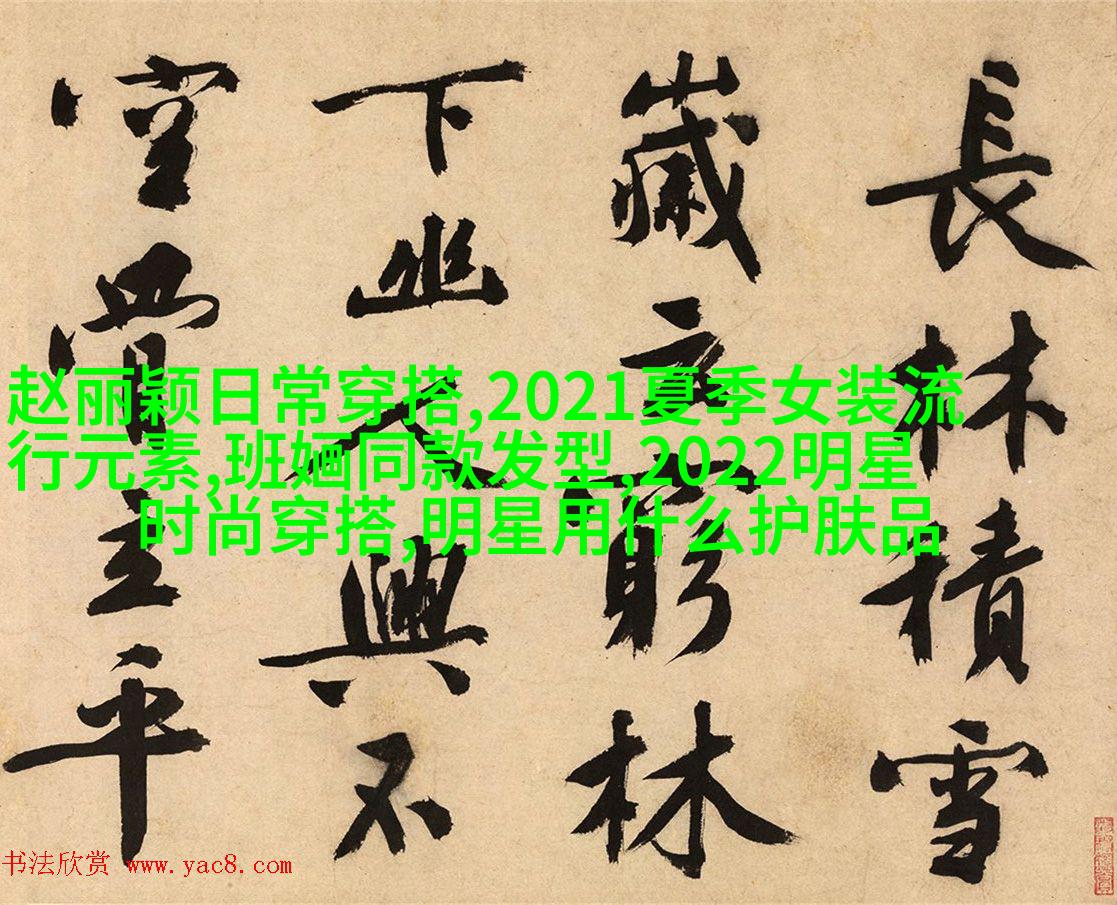 長林積雪
歲窮林
下幽人興不
空主平
赵丽颖日常穿搭,2021夏季女装流
行元素,班婳同款发型,2022明星
时尚穿搭,明星用什么护肤品
书法欣赏 www.yac8.com